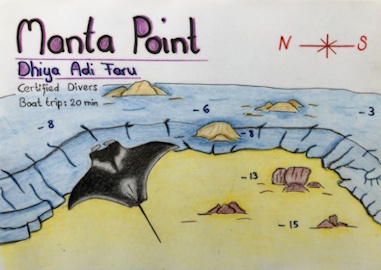 Manta Point
N S
Dhiya Adi Faru
Certified Divers
Boat trip: 20 min
- 6
- 3
- 8
- 8
- 13
- 15